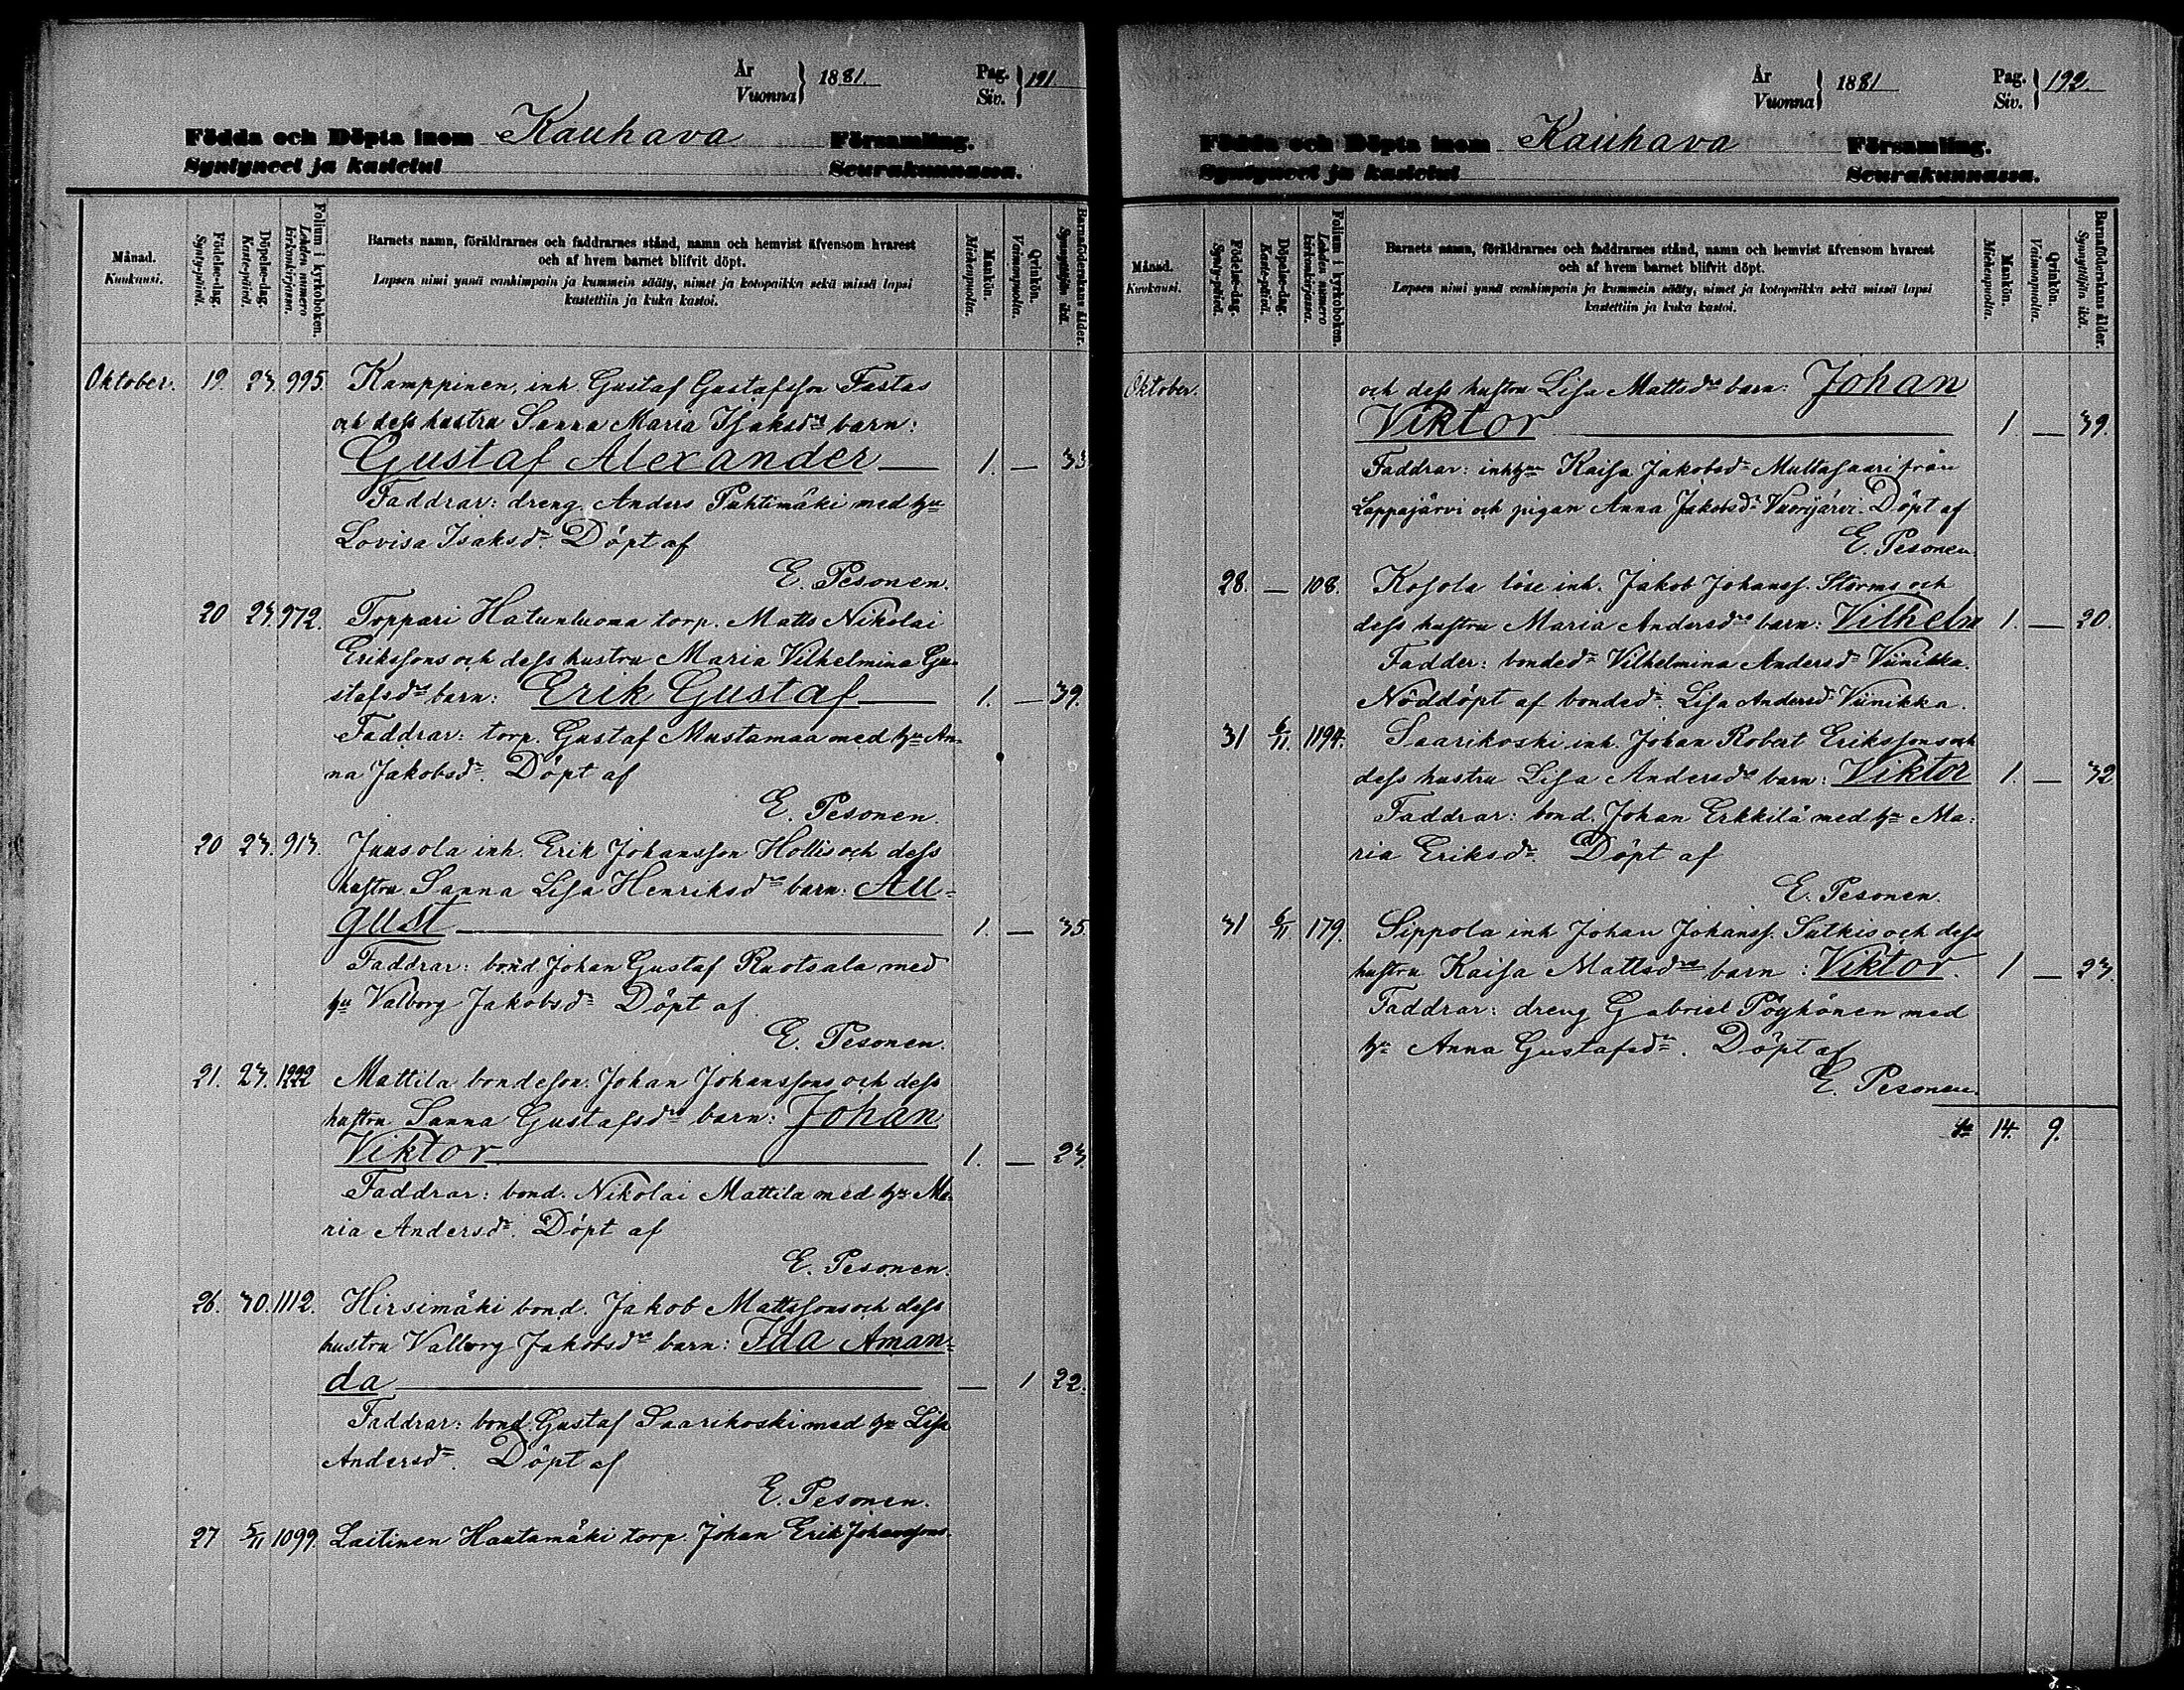 År
Vuonna } 1881.
Pag.
Siv. } 191.
Födda och Döpta inom Kauhava Församling.
Syntyneet ja kastetut Seurakunnassa.
Månad.
Kuukausi.
Födelse-dag.
Synty-päivä.
Döpelse-dag.
Kaste-päivä.
Folium i kyrkoboken.
Lehden numero
kirkonkirjassa.
Barnets namn, föräldrarnes och faddrarnes stånd, namn och hemvist äfvensom hvarest
och af hvem barnet blifvit döpt.
Lapsen nimi ynnä vanhimpain ja kummein sääty, nimet ja kotopaikka sekä missä lapsi
kastettiin ja kuka kastoi.
Mankön.
Miehenpuolia.
Qvinkön.
Vaimonpuolia.
Barnaföderskans ålder.
Synnyttäjän ikä.
Oktober. 19. 23. 995. Kamppinen, inh. Gustaf Gustafsson Fastas
och dess hustru Sanna Maria Isaksdrs barn:
Gustaf Alexander — 1. — 33
Faddrar: dreng. Anders Puhtimäki med hu
Lovisa Isaksdr. Döpt af
E. Pesonen.
20 23. 972. Toppari Hatunluoma torp. Matts Nikolai
Erikssons och dess hustru Maria Vilhelmina Gu-
stafsdrs barn: Erik Gustaf — 1. — 39.
Faddrar: torp. Gustaf Mustamaa med hu An-
na Jakobsdr. Döpt af
E. Pesonen.
20 23. 913. Juusola inh. Erik Johansson Hollis och dess
hustru Sanna Lisa Henriksdrs barn: Au-
gust — 1. — 35.
Faddrar: bond. Johan Gustaf Ruotsala med
hu Valborg Jakobsdr Döpt af
E. Pesonen.
21. 23. 1222 Mattila bondeson. Johan Johanssons och dess
hustru Sanna Gustafsdrs barn: Johan
Viktor — 1. — 23.
Faddrar: bond. Nikolai Mattila med hu Ma-
ria Andersdr. Döpt af
E. Pesonen.
26. 30. 1112. Hirsimäki bond. Jakob Mattssons och dess
hustru Valborg Jakobsdrs barn: Ida Aman-
da — — 1 22.
Faddrar: bond. Gustaf Saarikoski med hu Lisa
Andersdr. Döpt af
E. Pesonen.
27 5/11 1099. Laitinen Hautamäki torp. Johan Erik Johanssons
År
Vuonna } 1881
Pag.
Siv. } 192.
Födda och Döpta inom Kauhava Församling.
Syntyneet ja kastetut Seurakunnassa.
Månad.
Kuukausi.
Födelse-dag.
Synty-päivä.
Döpelse-dag.
Kaste-päivä.
Folium i kyrkoboken.
Lehden numero
kirkonkirjassa.
Barnets namn, föräldrarnes och faddrarnes stånd, namn och hemvist äfvensom hvarest
och af hvem barnet blifvit döpt.
Lapsen nimi ynnä vanhimpain ja kummein sääty, nimet ja kotopaikka sekä missä lapsi
kastettiin ja kuka kastoi.
Mankön.
Miehenpuolia.
Qvinkön.
Vaimonpuolia.
Barnaföderskans ålder.
Synnyttäjän ikä.
Oktober. och dess hustru Lisa Mattsdrs barn: Johan
Viktor — 1. — 39.
Faddrar: Kaisa Jakobsdr Multasaari från
Lappajärvi och pigan Anna Jakobsdr Vuorijärvi. Döpt af
E. Pesonen.
28. — 108. Kosola löse inh. Jakob Johanss. Storms och
dess hustru Maria Andersdrs barn: Vilhelm 1. — 20.
Fadder: bondedr Vilhelmina Andersdr Viinikka.
Nöddöpt af bondedr. Lisa Andersdr Viinikka.
31 6/11. 1194. Saarikoski inh. Johan Robert Erikssons och
dess hustru Lisa Andersdrs barn: Viktor 1. — 32
Faddrar: bond. Johan Erkkilä med hu Ma-
ria Eriksdr. Döpt af
E. Pesonen.
31 6/11. 179. Sippola inh Johan Johanss. Sutkis och dess
hustru Kaisa Mattsdrs barn: Viktor. 1 — 23.
Faddrar: dreng Gabriel Pöyhönen med
hu Anna Gustafsdr. Döpt af
E. Pesonen.
Sa 14. 9.